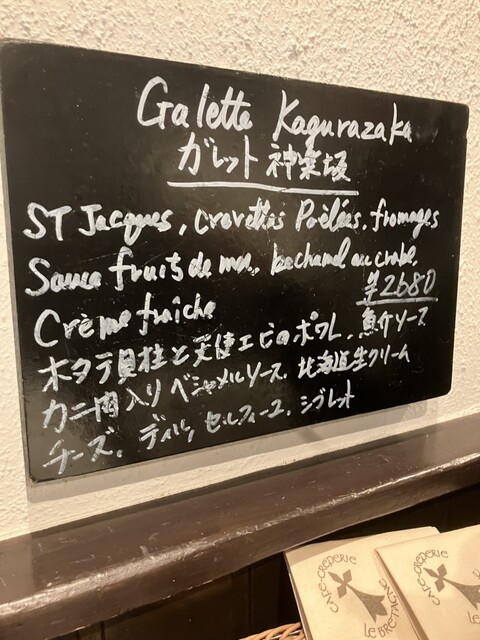 Galette Kagurazaka
ガレット 神楽坂
ST Jacques, crevettes Poêlées, fromages
Sauce fruits de mer, bechamel au crabe,
Crème fraîche
¥2680
ホタラ貝柱と天使エビのポワレ、魚介ソース
カニ肉入りベシャメルソース、北海道生クリーム
チーズ、ディル、セルフィーユ、シブレット
CAFE-CRÊPERIE
LE BRETAGNE
CAFE-CRÊPERIE
LE BRETAGNE